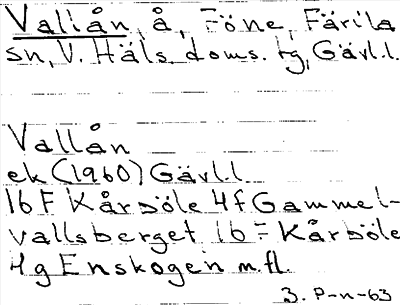 Vallån, å, Föne, Färila
sn, V. Häls. doms. tg, Gävl.l.
Vallån
ek (1960) Gävl.l.
16F Kårböle 4f Gammel-
vallsberget 16F Kårböle
4g Enskogen m.fl.
3. P-n-63